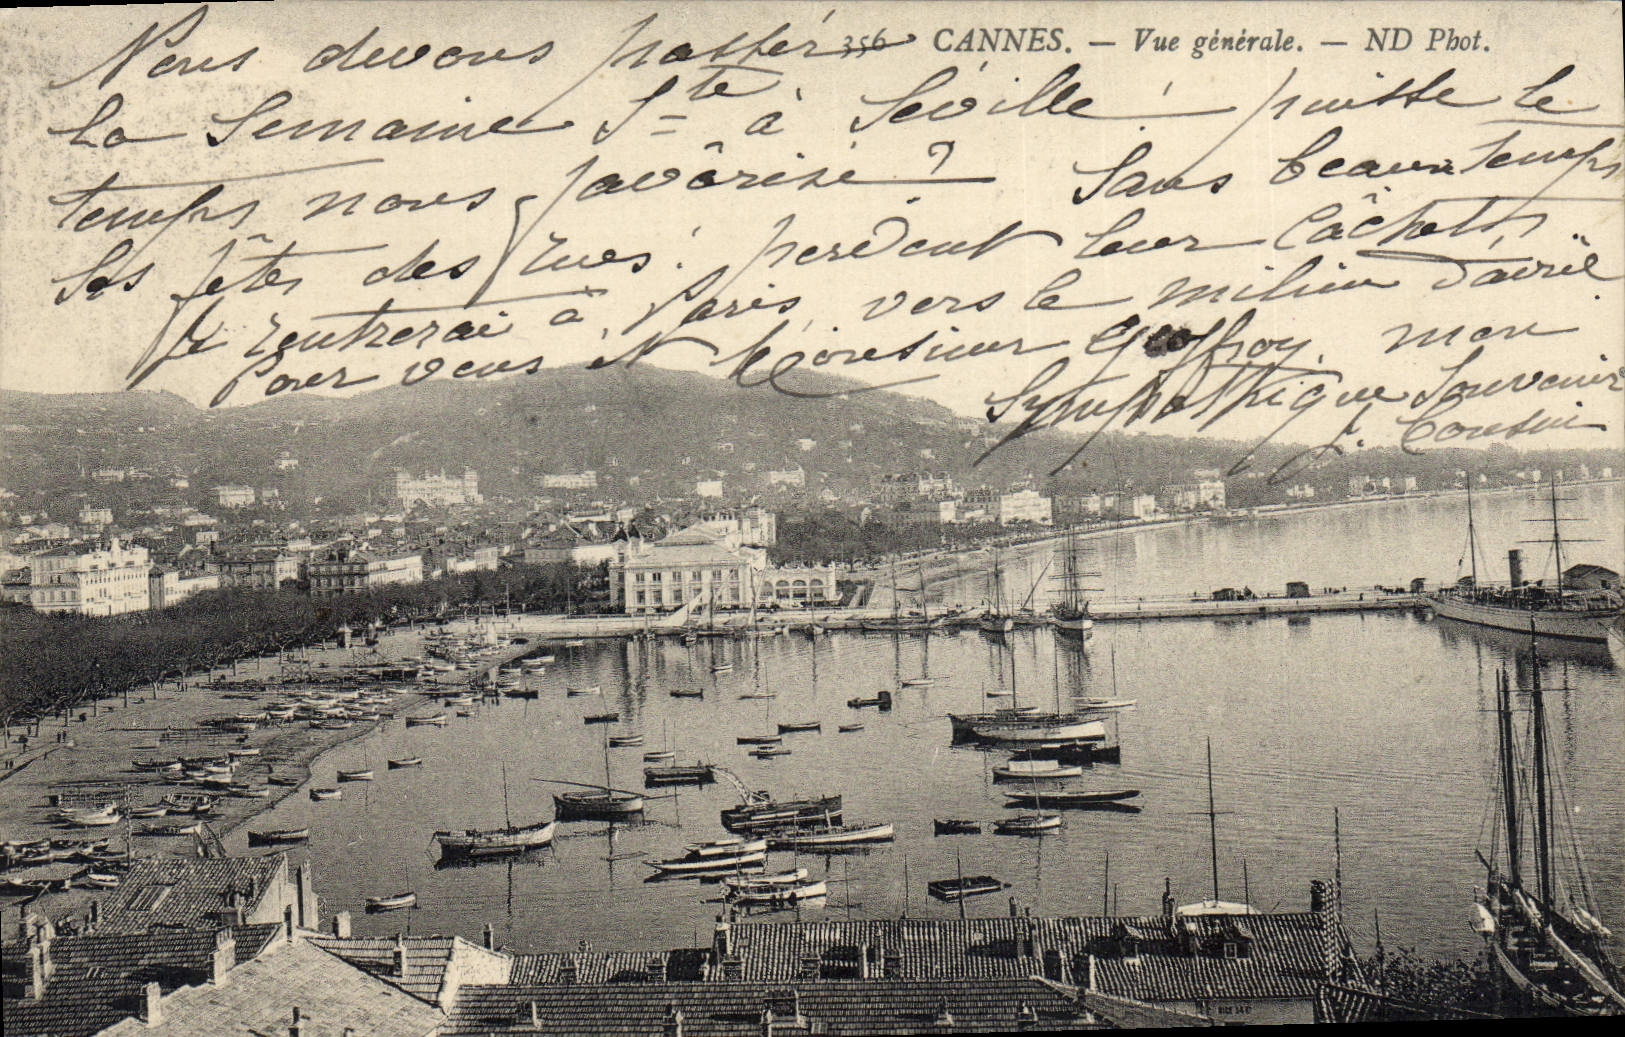 356 CANNES. — Vue générale. — ND Phot.
Nous devons passer
la Semaine Ste à Séville ! puisse le
temps nous favôrisé ? Sans beaux temps
les fêtes des rues ! perdent leur Câchets,
Je rentrerai à Paris, vers le milieu d'avril
Pour vous et Monsieur Geoffroy, mon
Sympathique Souvenir
J. Cousin